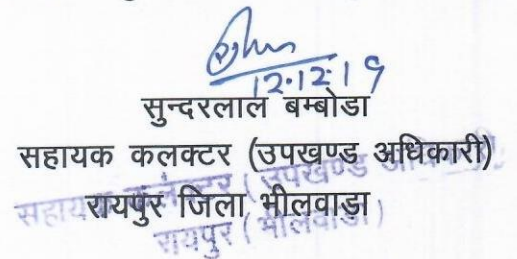 12.12.19
सुन्दरलाल बम्बोडा
सहायक कलक्टर (उपखण्ड अधिकारी)
रायपुर जिला भीलवाड़ा
सहायक कलक्टर ( उपखण्ड अधिकारी
रायपुर ( भीलवाड़ा )